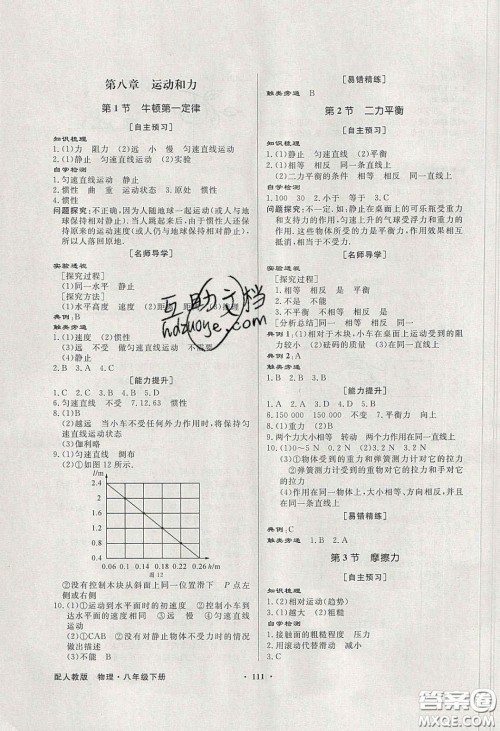 第八章 运动和力
第1节 牛顿第一定律
[自主预习]
知识梳理
1.(1)力 阻力 (2)远 小 慢 匀速直线运动
2.(1)匀速直线运动 静止 (2)实验
自学检测
1.匀速直线运动 静止
2.惯性 曲 重 运动状态 3.原处 惯性
4.惯性
问题探究:不正确,因为人随地球一起运动(或人与地球保持相对静止).当人跳起时,由于惯性,人还保持原来的运动状态(或人仍与地球保持相对静止),所以人落回原地.
[名师导学]
实验透视
[探究过程]
(1)同一水平 静止
[探究方法]
(1)水平高度 速度
典例:B
触类旁通
1.(1)速度 (2)惯性
(3)远 不受 做匀速直线运动 不需要
(4)静止
2.B 3.A 4.B
[能力提升]
1.C 2.C 3.B 4.D 5.D
6.匀速直线 不受 7.12.63 惯性
8.(1)B
(2)越远 当小车不受任何外力作用时,将保持匀速直线运动状态
(3)伽利略
9.(1)匀速直线 绸布
(2)①如图12所示.
l/m
2.4
2
1.6
1.2
0.8
0.4
0.06 0.1 0.14 0.18 0.22 0.26 l/m
图12
②没有控制木块从斜面上同一位置滑下
10.(1)①运动到水平面时的初速度 ②控制小车到达水平面时的速度相同 ③不变
(2)①CAB ②没有对静止物体不受力时的情况做出描述
[易错精练]
触类旁通 B
第2节 二力平衡
[自主预习]
知识梳理
1.(1)静止 匀速直线 (2)平衡
(3)相等 相反 同一条直线上
2.(1)二力平衡的条件 (2)平衡 相反
(3)相等 相反 同一直线上
自学检测
1.100 30 2.小于 等于 3.C
问题探究:不一定.如:静止在桌面上的可乐瓶受重力和支持力的作用,匀速上升的气球受浮力和重力的作用,这些力都是成对出现的,并且它们的作用效果相互抵消.
[名师导学]
实验透视
[探究过程]
1.相等 相反
2.不是 不能
3.不能
[分析总结]相等 相反 同一直线 同一
典例1:(1)相对于木块,小车在桌面上运动受到的阻力较小 (2)砝码的质量
典例2:A
触类旁通 1.B 2.B 3.A
[能力提升]
1.C 2.B 3.A 4.D 5.B
6.150 000 150 000 7.平衡力 向上
8.(1)重力
9.两个力大小相等 转动 两个力大小相等
10.(1)0~5 N 0.2 N (2)0~0
(3)①物体受到的重力和弹簧测力计对它的拉力 ②弹簧测力计受到的重物对它的拉力和手对它的拉力
(4)作用在同一物体上,大小相等,方向相反,作用在同一直线上
[易错精练]
典例:C
触类旁通 C
第3节 摩擦力
[自主预习]
知识梳理
1.(2)相对运动(趋势)
2.(2)相反
自学检测
1.接触面的粗糙程度 压力
2.用滚动代替滑动 300 3.D
配人教版 物理·八年级下册
· 111 ·
互助文档
hdzuoye.com
答案圈
MXQE.COM